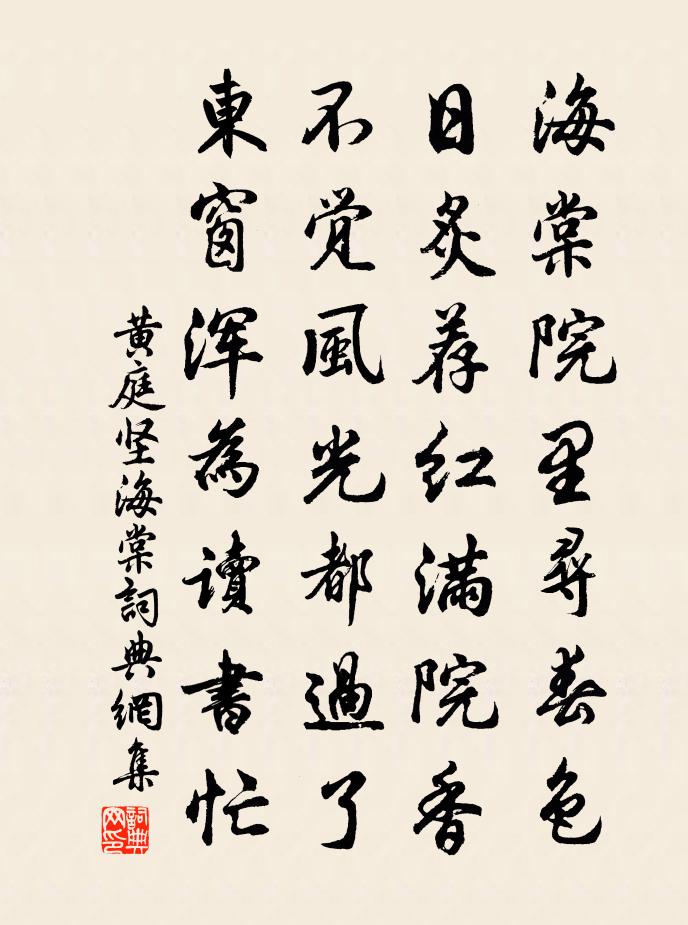 海棠院里尋春色
日炙荐红满院香
不覚風光都過了
東窗浑為讀書忙
黄庭坚海棠詞典網集
詞典網印